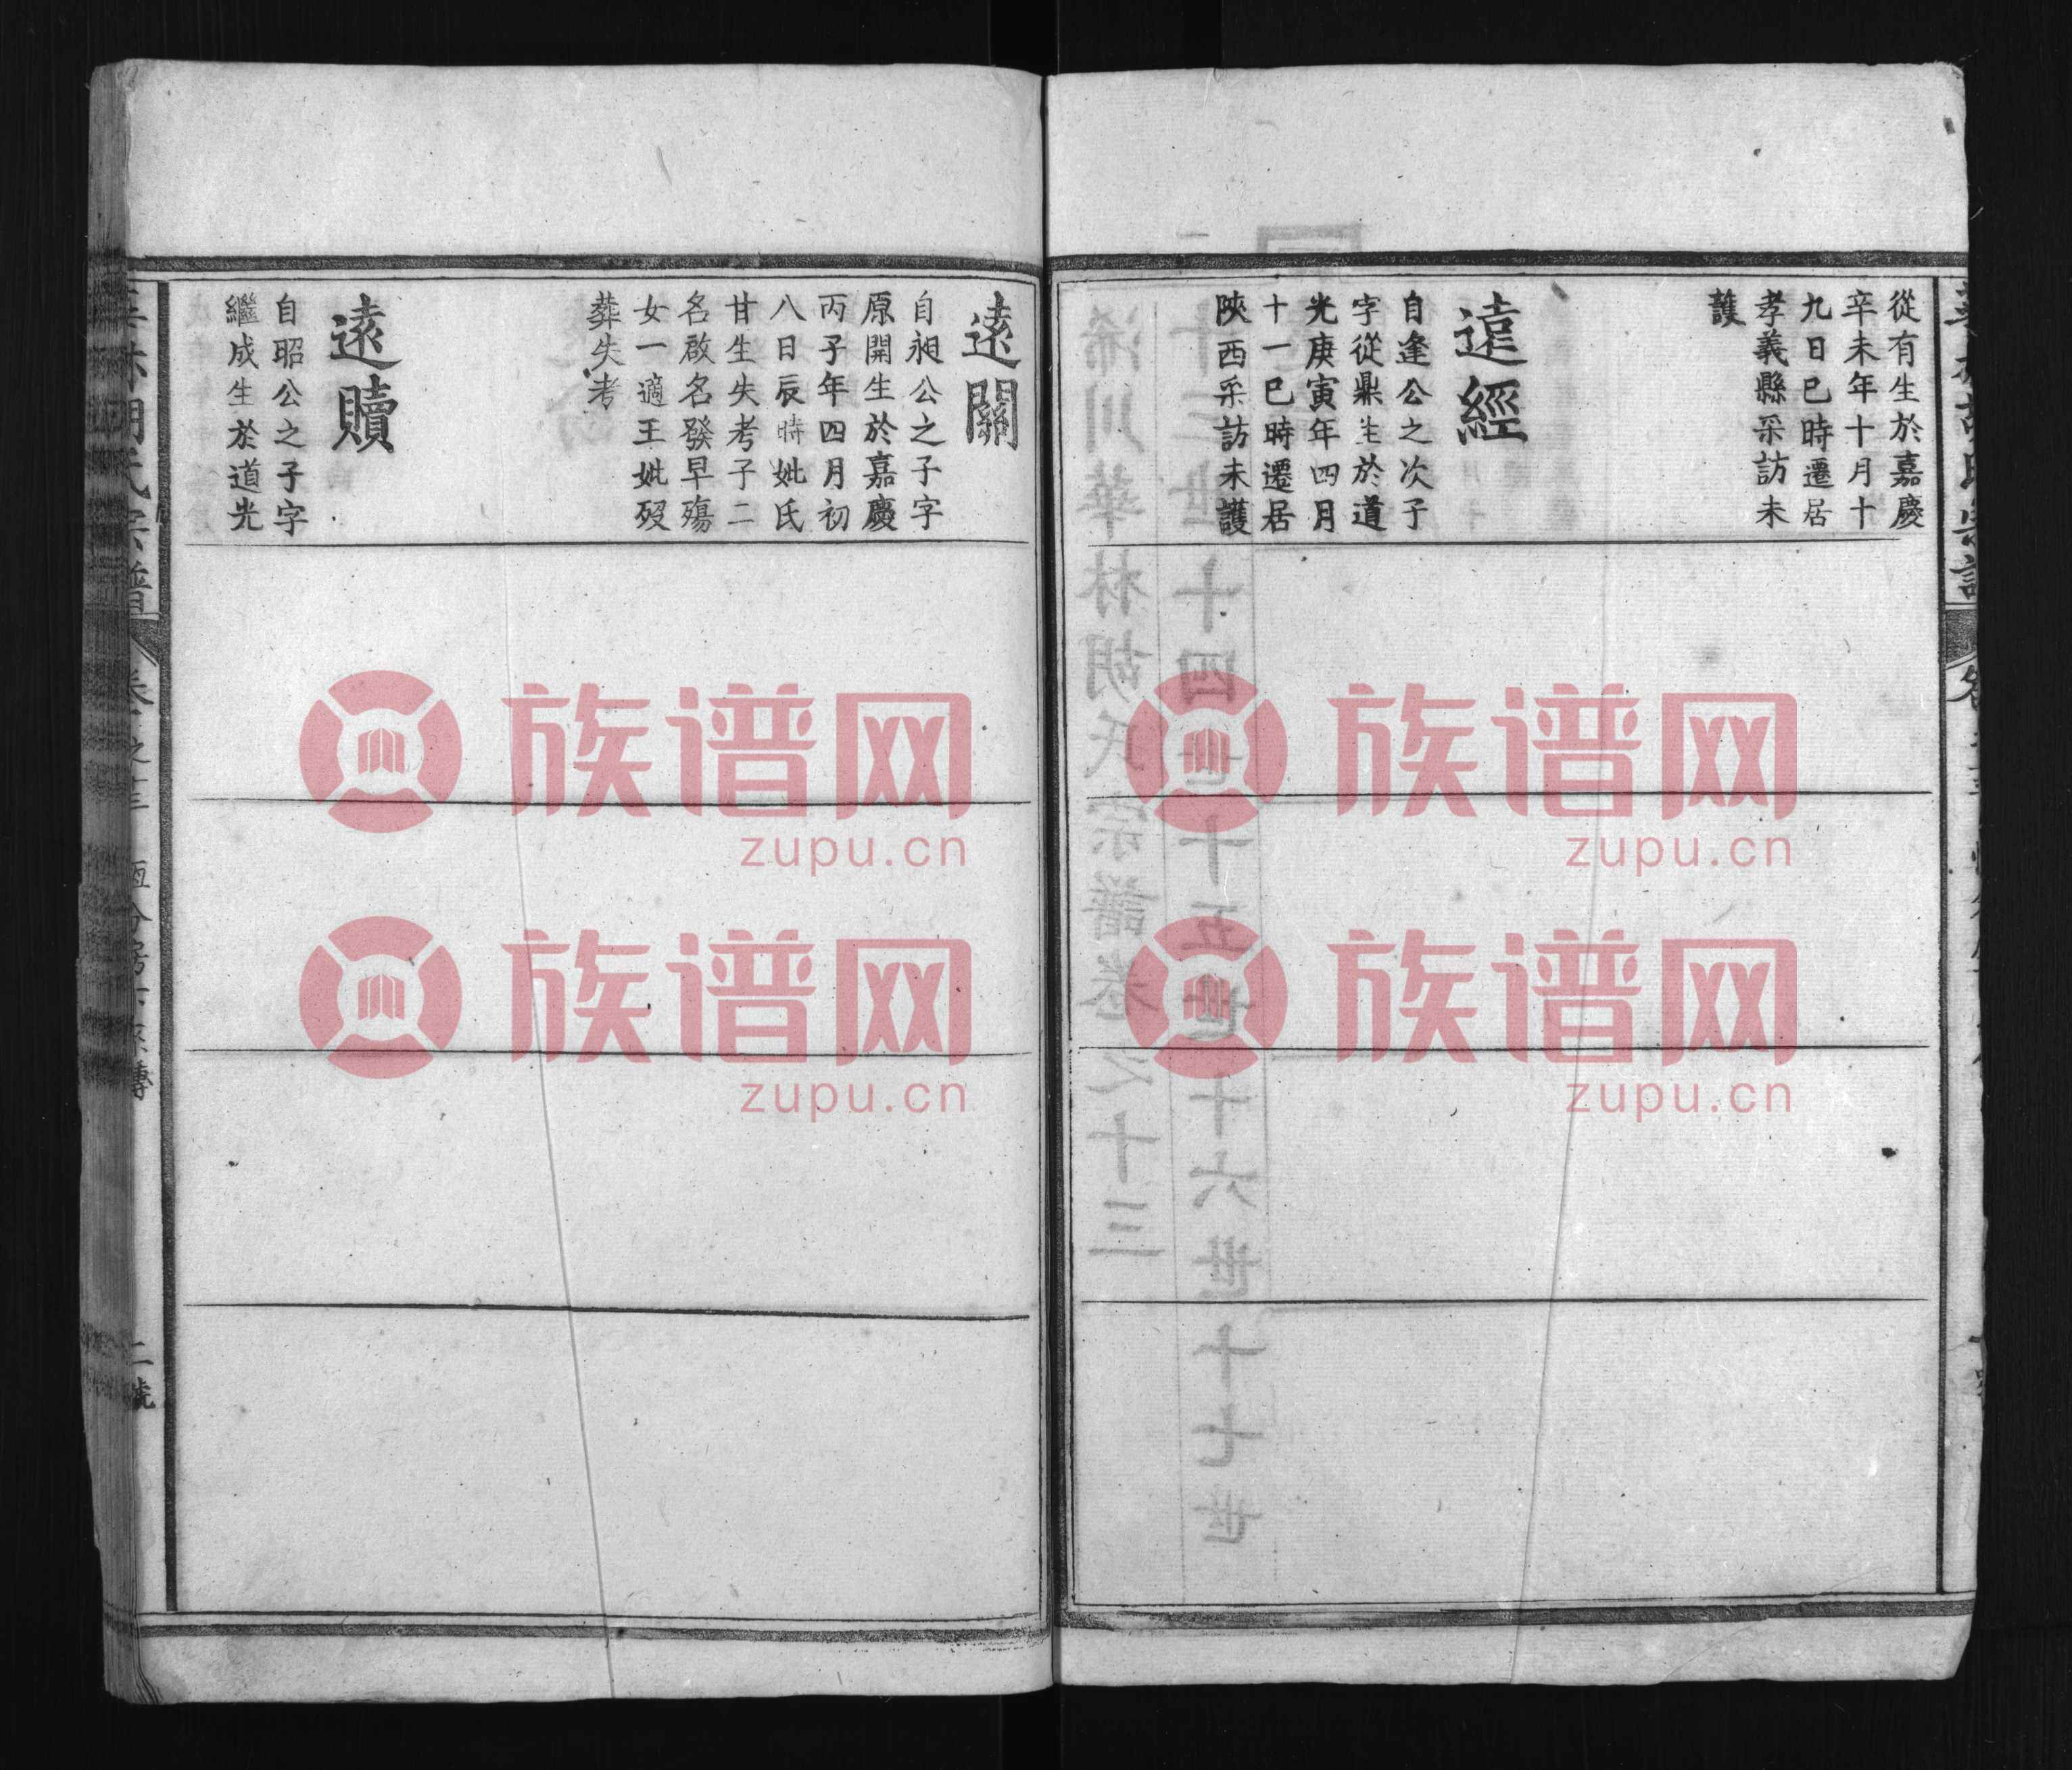 從有生於嘉慶
辛未年十月十
九日巳時遷居
孝義縣采訪未
護
遠經
自逢公之次子
字從鼎生於道
光庚寅年四月
十一巳時遷居
陝西采訪未護
遠關
自昶公之子字
原開生於嘉慶
丙子年四月初
八日辰時妣氏
甘生失考子二
名啟名發早殤
女一適王妣歿
葬失考
遠贖
自昭公之子字
繼成生於道光
二號
族谱网
zupu.cn
族谱网
zupu.cn
族谱网
zupu.cn
族谱网
zupu.cn